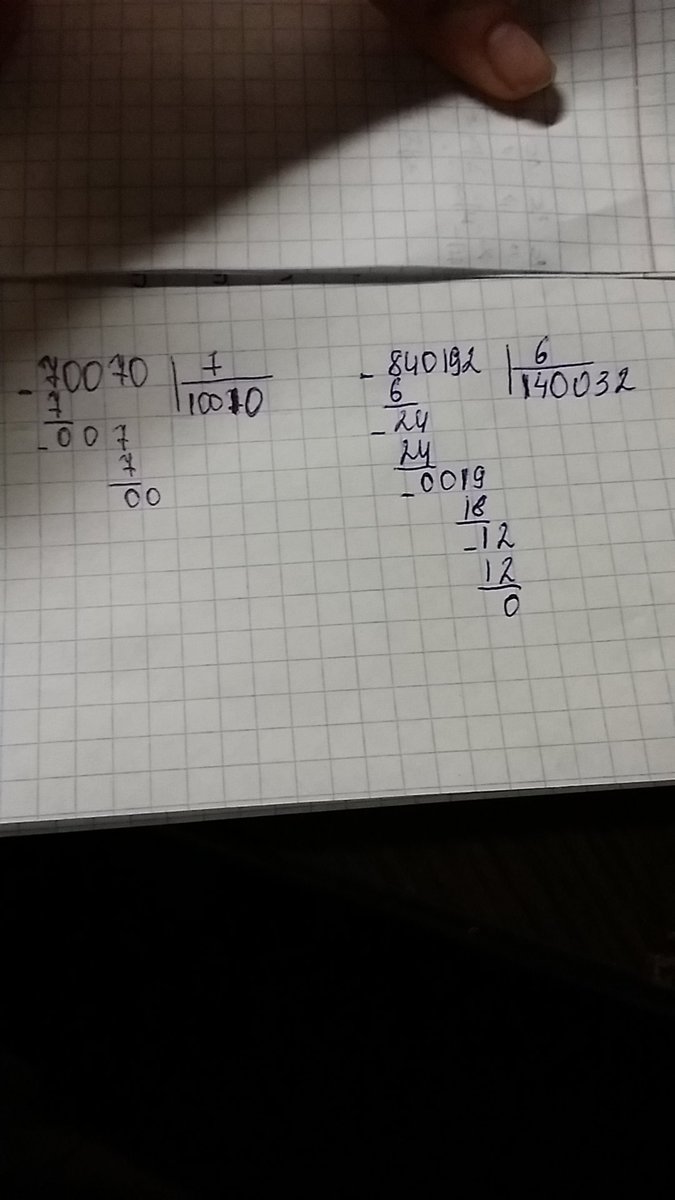 - 70070 | 7
7 10010
- 007
7
00
- 840192 | 6
6 140032
- 24
24
- 0019
18
- 12
12
0